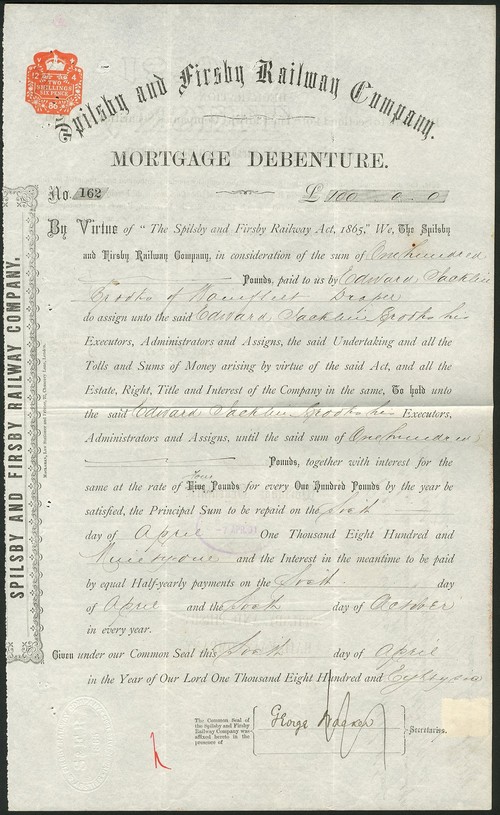 12 4
TWO SHILLINGS SIX PENCE
86
Spilsby and Firsby Railway Company.
MORTGAGE DEBENTURE.
No. 162 £ 100 0 0
By Virtue of "The Spilsby and Firsby Railway Act, 1865," We, The Spilsby
and Firsby Railway Company, in consideration of the sum of One hundred
Pounds, paid to us by Edward
of Wainfleet Draper
do assign unto the said Edward his
Executors, Administrators and Assigns, the said Undertaking and all the
Tolls and Sums of Money arising by virtue of the said Act, and all the
Estate, Right, Title and Interest of the Company in the same, To hold unto
the said Edward his Executors,
Administrators and Assigns, until the said sum of One hundred
Pounds, together with interest for the
Four
same at the rate of Five Pounds for every One Hundred Pounds by the year be
satisfied, the Principal Sum to be repaid on the
day of April One Thousand Eight Hundred and
Ninety one and the Interest in the meantime to be paid
by equal Half-yearly payments on the day
of April and the day of October
in every year.
Given under our Common Seal this day of April
in the Year of Our Lord One Thousand Eight Hundred and Eighty six
The Common Seal of
the Spilsby and Firsby
Railway Company was
affixed hereto in the
presence of
George Walker
Secretaries.
SPILSBY AND FIRSBY RAILWAY COMPANY.